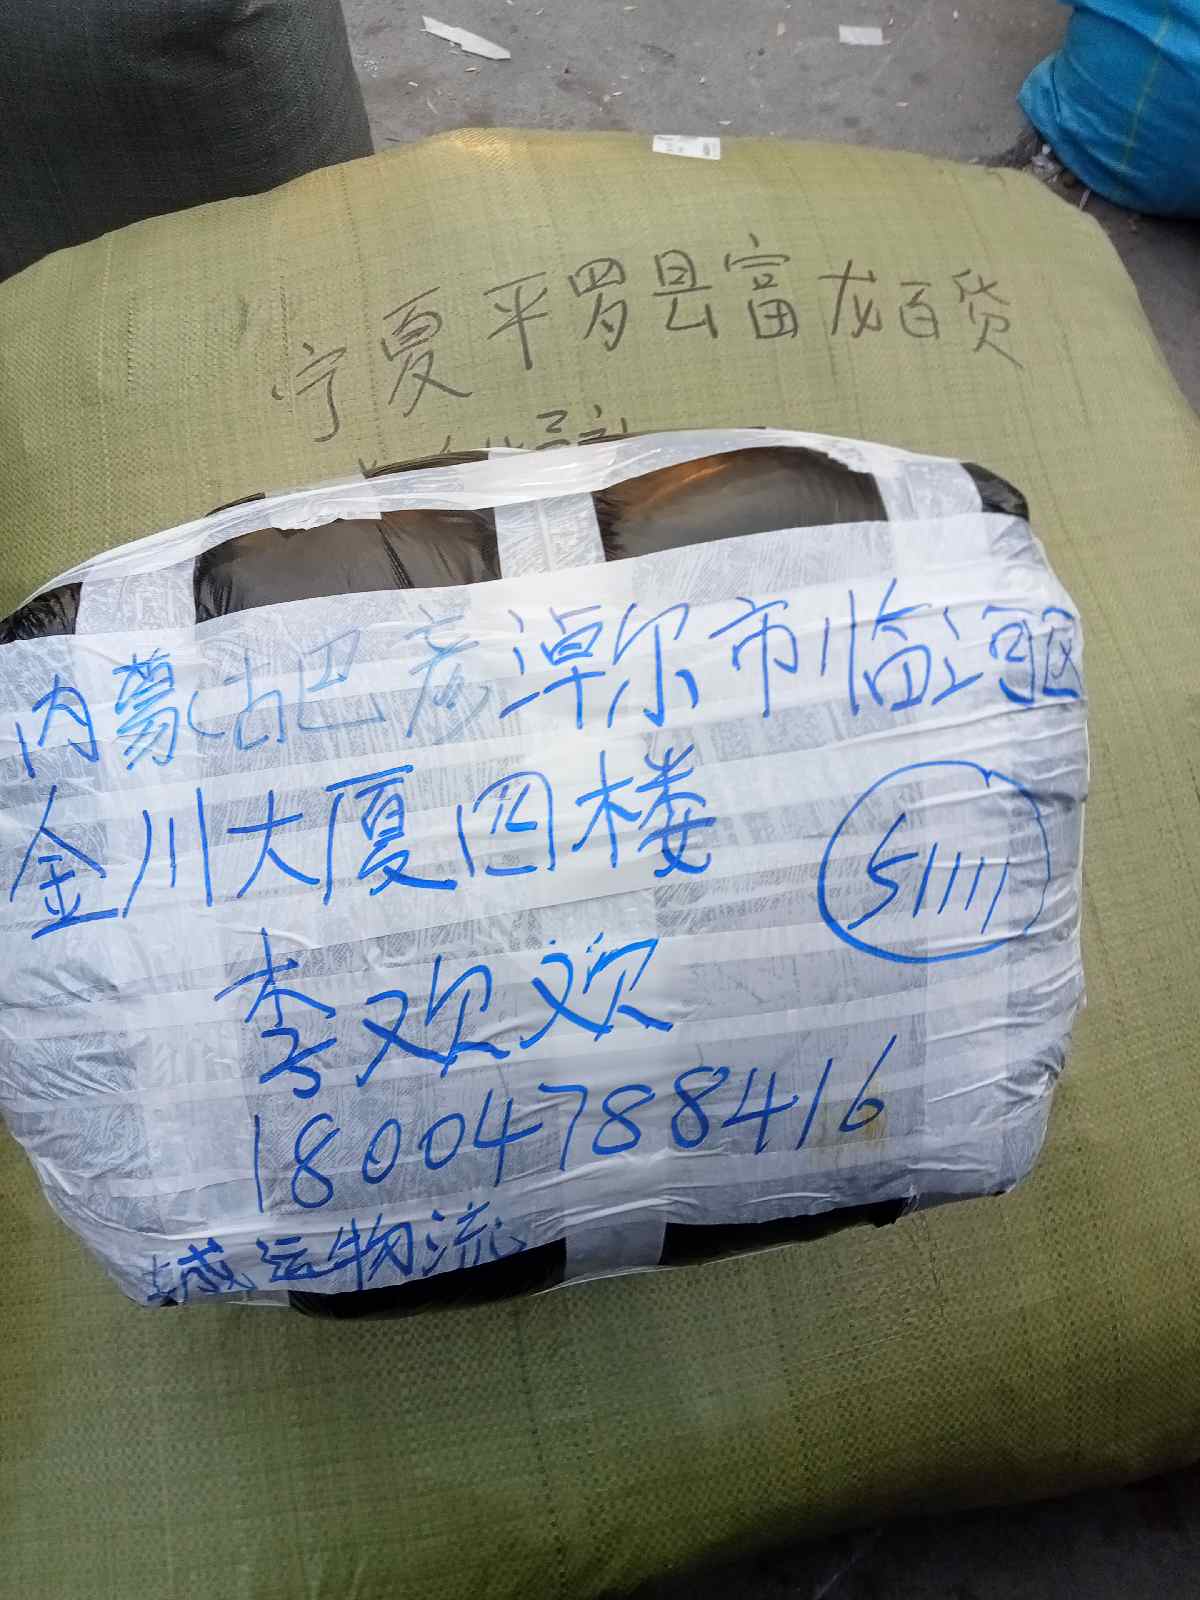 宁夏平罗县富龙百货
内蒙古巴彦淖尔市临河区
金川大厦四楼
51111
李欢欢
18004788416
城运物流